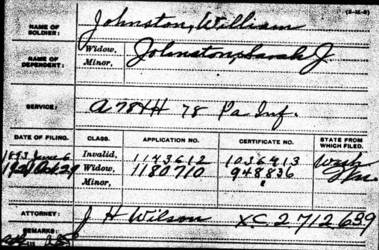 (3-11-5)
NAME OF SOLDIER: Johnston, William
NAME OF DEPENDENT: Widow, Johnston, Sarah J.
Minor,
SERVICE: 78 Pa Inf.
DATE OF FILING. CLASS. APPLICATION NO. CERTIFICATE NO. STATE FROM WHICH FILED.
1893 June 6 Invalid, 1143612 1036413 Wash
Oct 29 Widow, 1180710 948836
Minor,
ATTORNEY: J H Wilson XC 2712639
REMARKS: